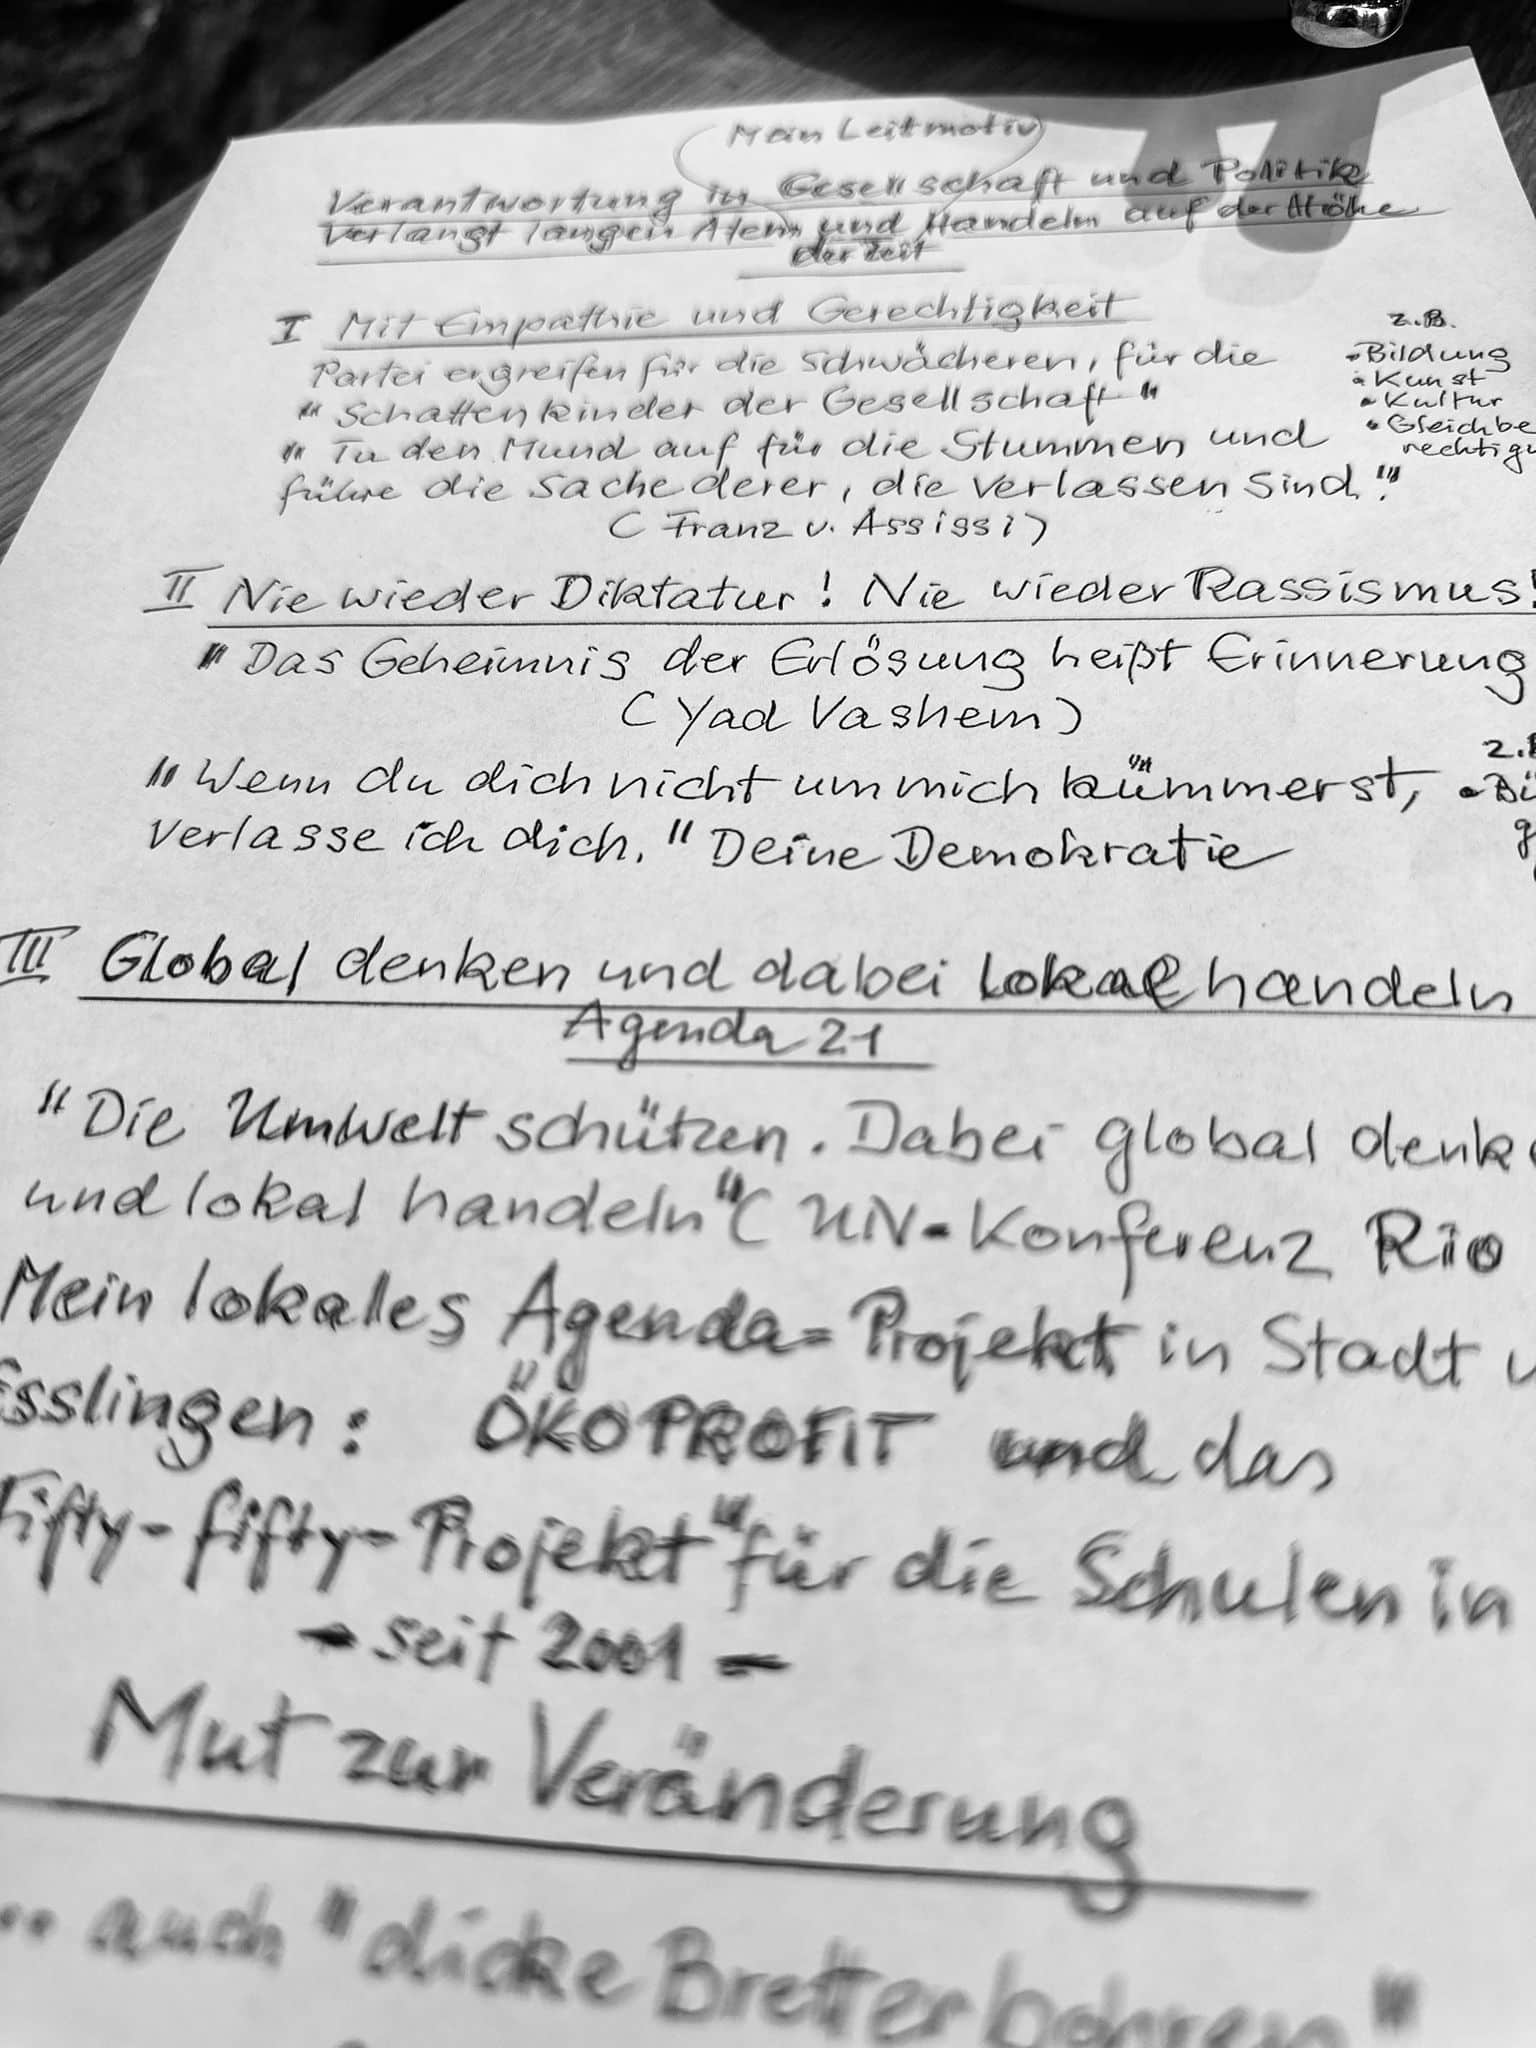 Mein Leitmotiv
Verantwortung in Gesellschaft und Politik
verlangt langen Atem und Handeln auf der Höhe
der Zeit
I Mit Empathie und Gerechtigkeit
Partei ergreifen für die Schwächeren, für die
"Schattenkinder der Gesellschaft"
"Tu den Mund auf für die Stummen und
führe die Sache derer, die verlassen sind."
(Franz v. Assissi)
z.B.
• Bildung
• Kunst
• Kultur
• Gleichbe
rechtigu
II Nie wieder Diktatur! Nie wieder Rassismus!
"Das Geheimnis der Erlösung heißt Erinnerung
(Yad Vashem)
"Wenn du dich nicht um mich kümmerst,
verlasse ich dich." Deine Demokratie
z.B
• Bü
g
III Global denken und dabei lokal handeln
Agenda 21
"Die Umwelt schützen. Dabei global denke
und lokal handeln" (UN-Konferenz Rio
Mein lokales Agenda=Projekt in Stadt u
Esslingen: ÖKOPROFIT und das
Fifty-fifty-Projekt" für die Schulen in
- seit 2001 -
Mut zur Veränderung
.. auch "dicke Bretter bohren"